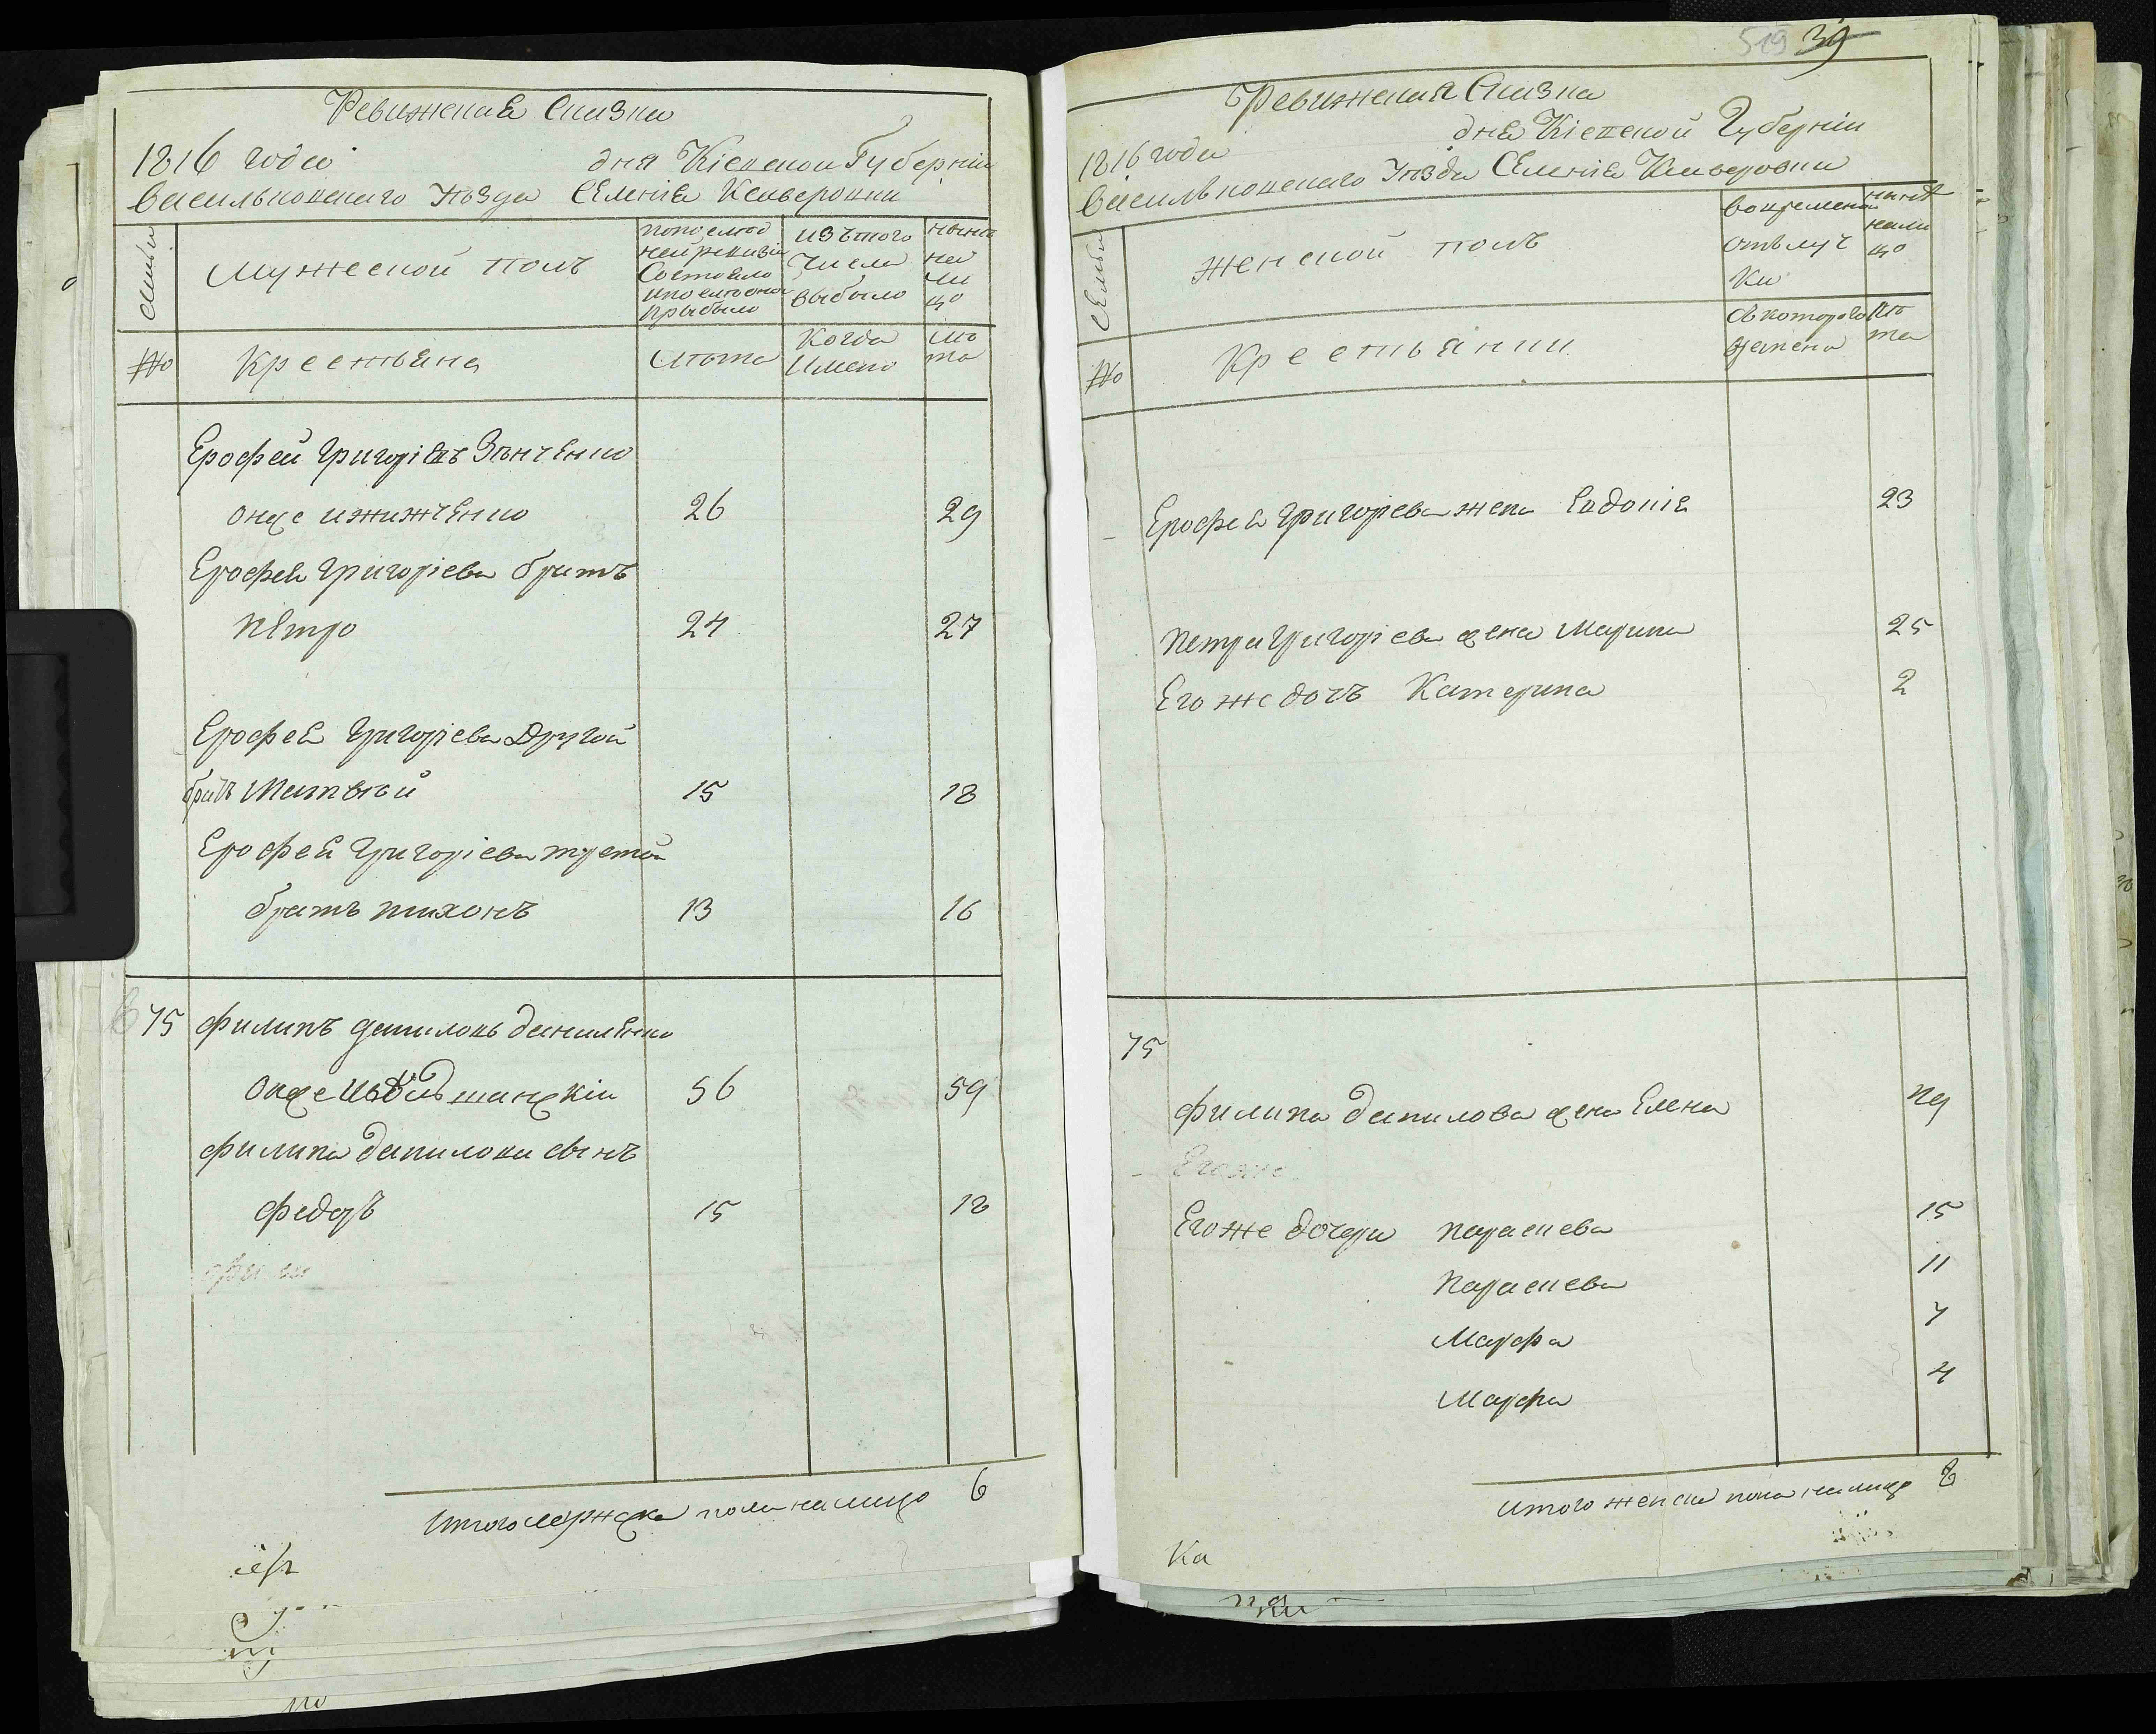 Ревижская Сказка
1816 года дня Кіевской Губерніи
Васильковского Уѣзда Селенія Кошеровки
Семьи
Мужеской полъ
по последней ревизіи состояло и после оной прибыло
изъ того числа выбыло
ныне на лицо
№
Крестьяне
Лѣта
Когда Имено
Лѣта
Ерофей Григоріевъ Зѣнченко
онже 26 29
Ерофея Григоріева братъ
Петро 24 27
Ерофея Григоріева другой
братъ Матвѣй 15 18
Ерофея Григоріева третой
братъ тихонъ 13 16
75 филипъ даниловъ даниленко
онже 56 59
филипа данилова сынъ
федоръ 15 18
Итого мужска пола налицо 6
519 39
Ревижская Сказка
1816 года дня Кіевской Губерніи
Васильковского Уѣзда Селенія Кошеровки
Семьи
женской полъ
во временной отълучки
ныне налицо
№
Крестьянки
Съ которого времени
Лѣта
Ерофея Григоріева жена Евдокія 23
Петра Григоріева жена Марина 25
Его же дочь Катерина 2
75
филипа данилова жена Елена
Егоже
Егоже дочери параскева 15
Параскева 11
Марфа 7
Марфа 4
Итого женска пола налицо 8
Ка